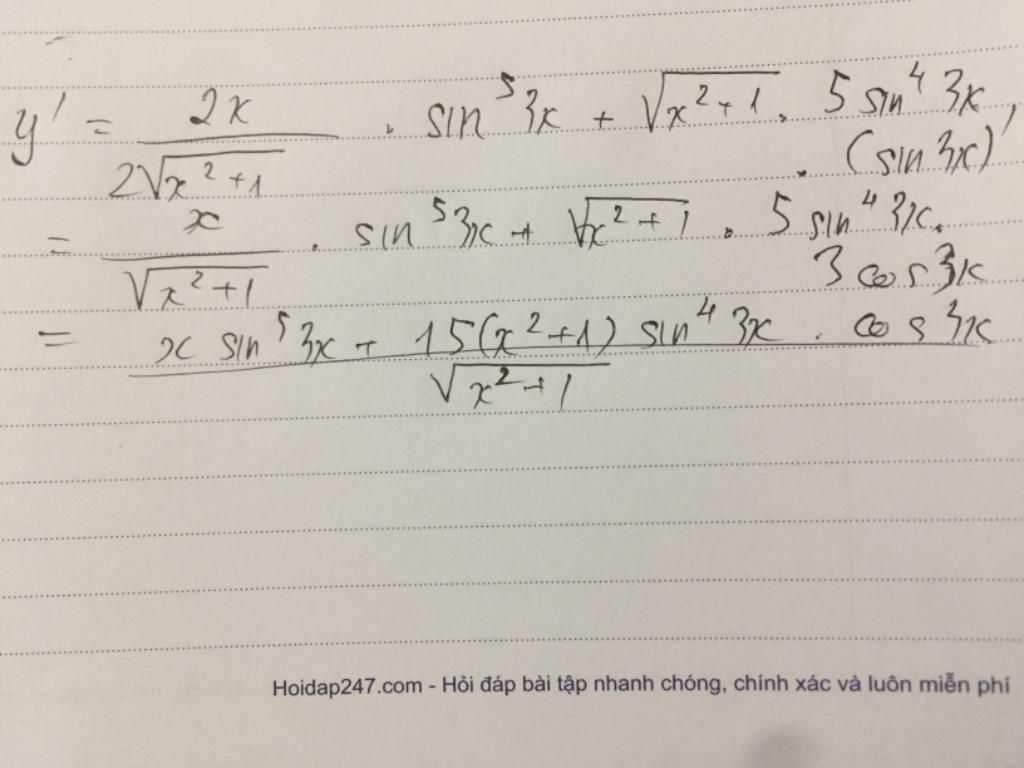 y' = 2x / 2√(x² + 1) . sin⁵ 3x + √(x² + 1) . 5 sin⁴ 3x .
. (sin 3x)'
= x / √(x² + 1) . sin⁵ 3x + √(x² + 1) . 5 sin⁴ 3x .
3 cos 3x
= x sin⁵ 3x + 15(x² + 1) sin⁴ 3x . cos 3x / √(x² + 1)
Hoidap247.com - Hỏi đáp bài tập nhanh chóng, chính xác và luôn miễn phí